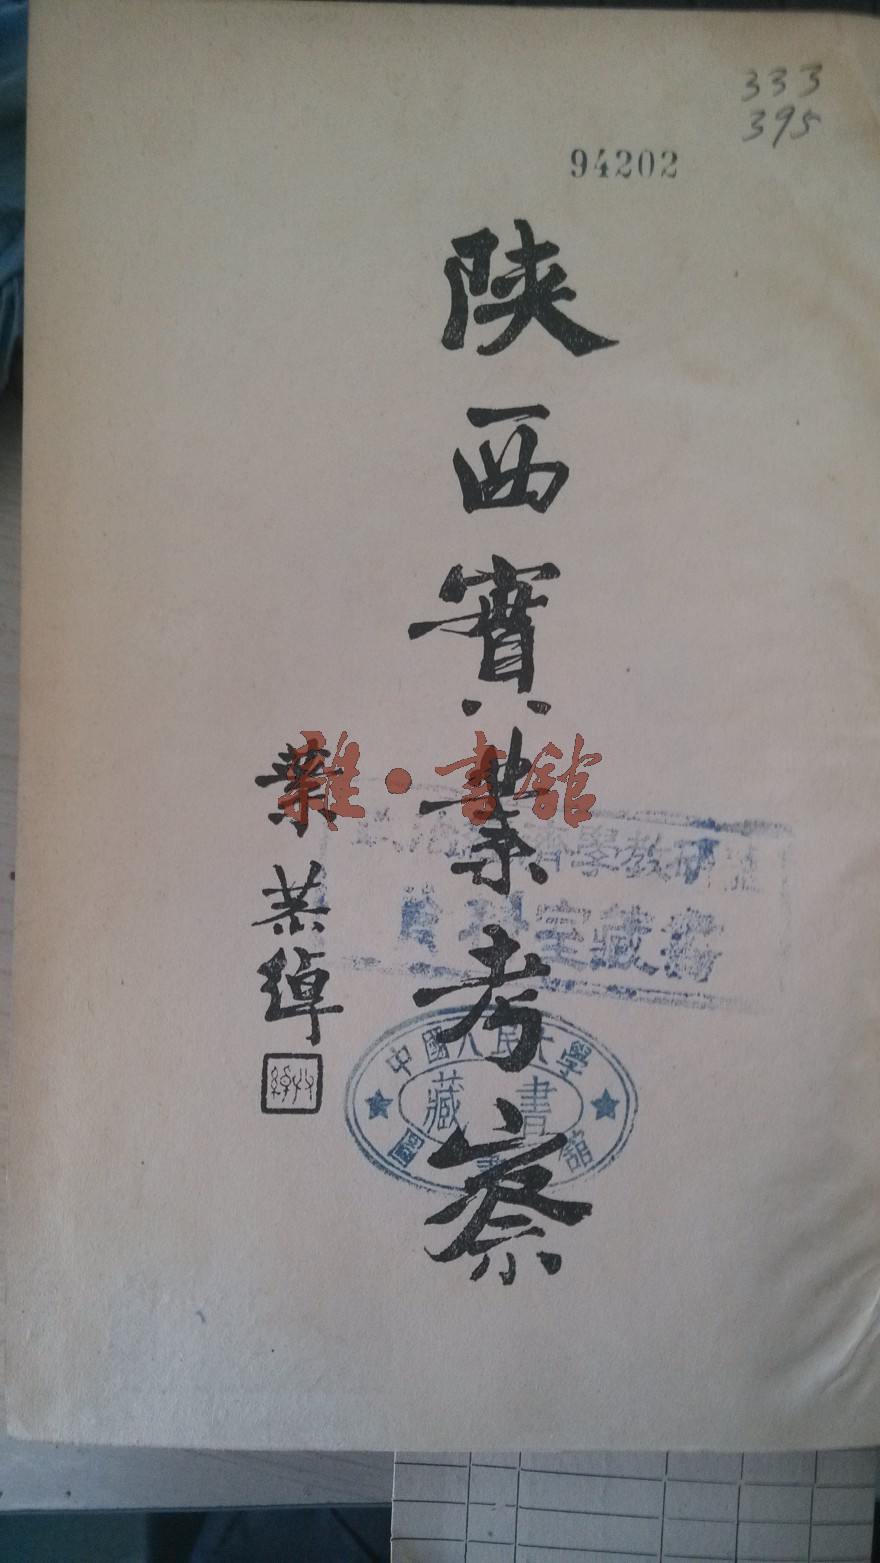 333
395
94202
陝西實業考察
葉恭綽
雜·書館
濟學教研
室藏書
中國人民大學
藏書
圖書館